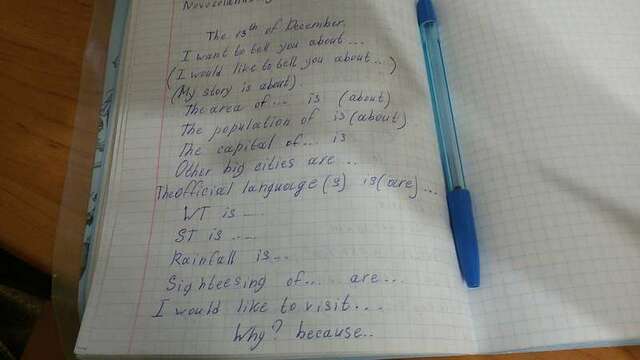 The 13th of December
I want to tell you about...
(I would like to tell you about...)
(My story is about)
The area of... is (about)
The population of is (about)
The capital of... is
Other big cities are...
The official language(s) is (are)...
WT is ....
ST is .....
Rainfall is...
Sigheesing of... are...
I would like to visit....
Why? because...